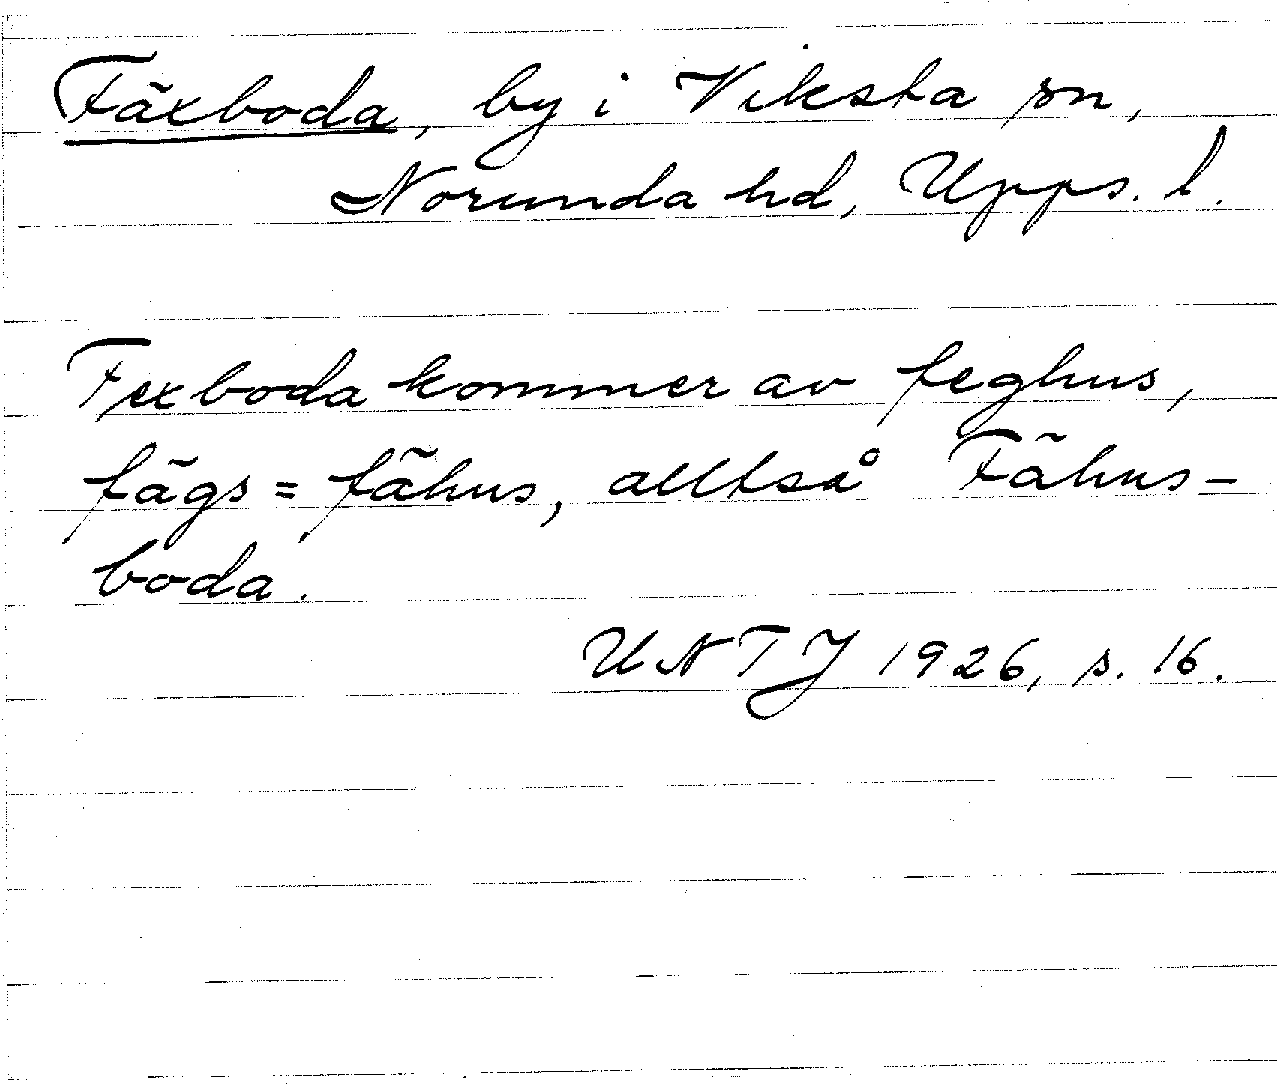 Fäxboda, by i Viksta sn,
Norunda hd, Upps. l.
Fexboda kommer av feghus,
fägs = fähus, alltså Fähus-
boda.
UNTJ 1926, s. 16.